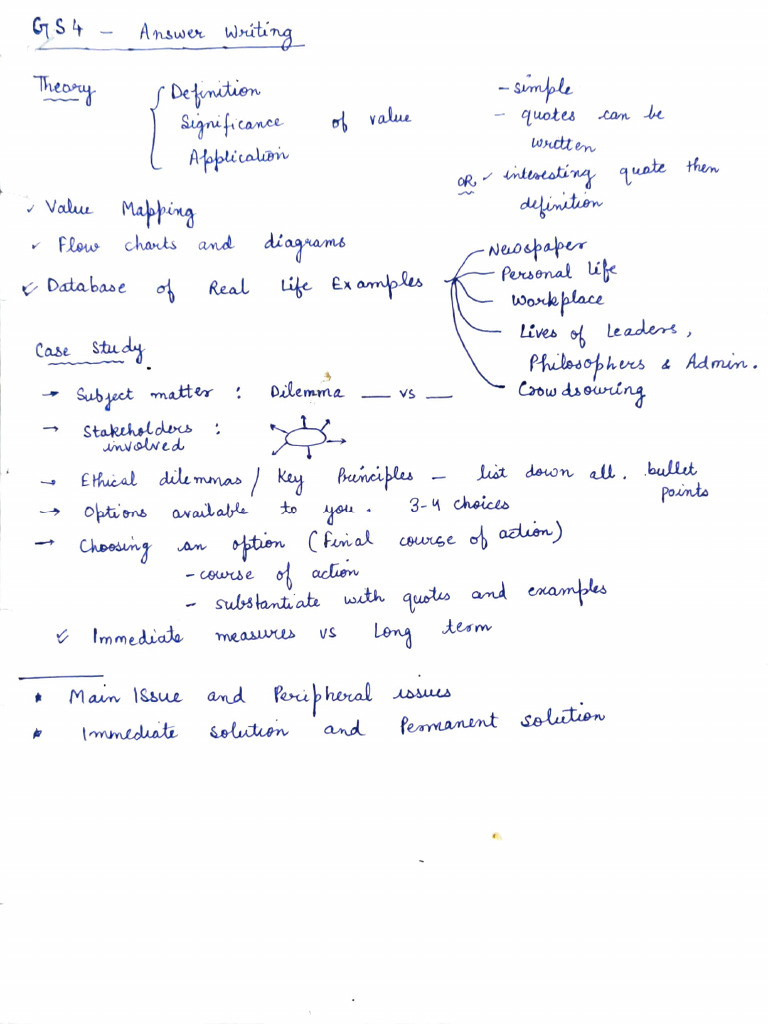 GS4 - Answer Writing
Theory
Definition
Significance of value
Application
- simple
- quotes can be
written
OR interesting quote then
definition
✓ Value Mapping
✓ Flow charts and diagrams
✓ Database of Real Life Examples
Newspaper
Personal life
Workplace
Lives of Leaders,
Philosophers & Admin.
Crowdsouring
Case Study
→ Subject matter : Dilemma __ vs __
→ Stakeholders :
involved
→ Ethical dilemmas / Key Principles - list down all. bullet
points
→ Options available to you. 3-4 choices
→ Choosing an option (Final course of action)
- course of action
- substantiate with quotes and examples
✓ Immediate measures vs Long term
* Main Issue and Peripheral issues
* Immediate solution and Permanent solution